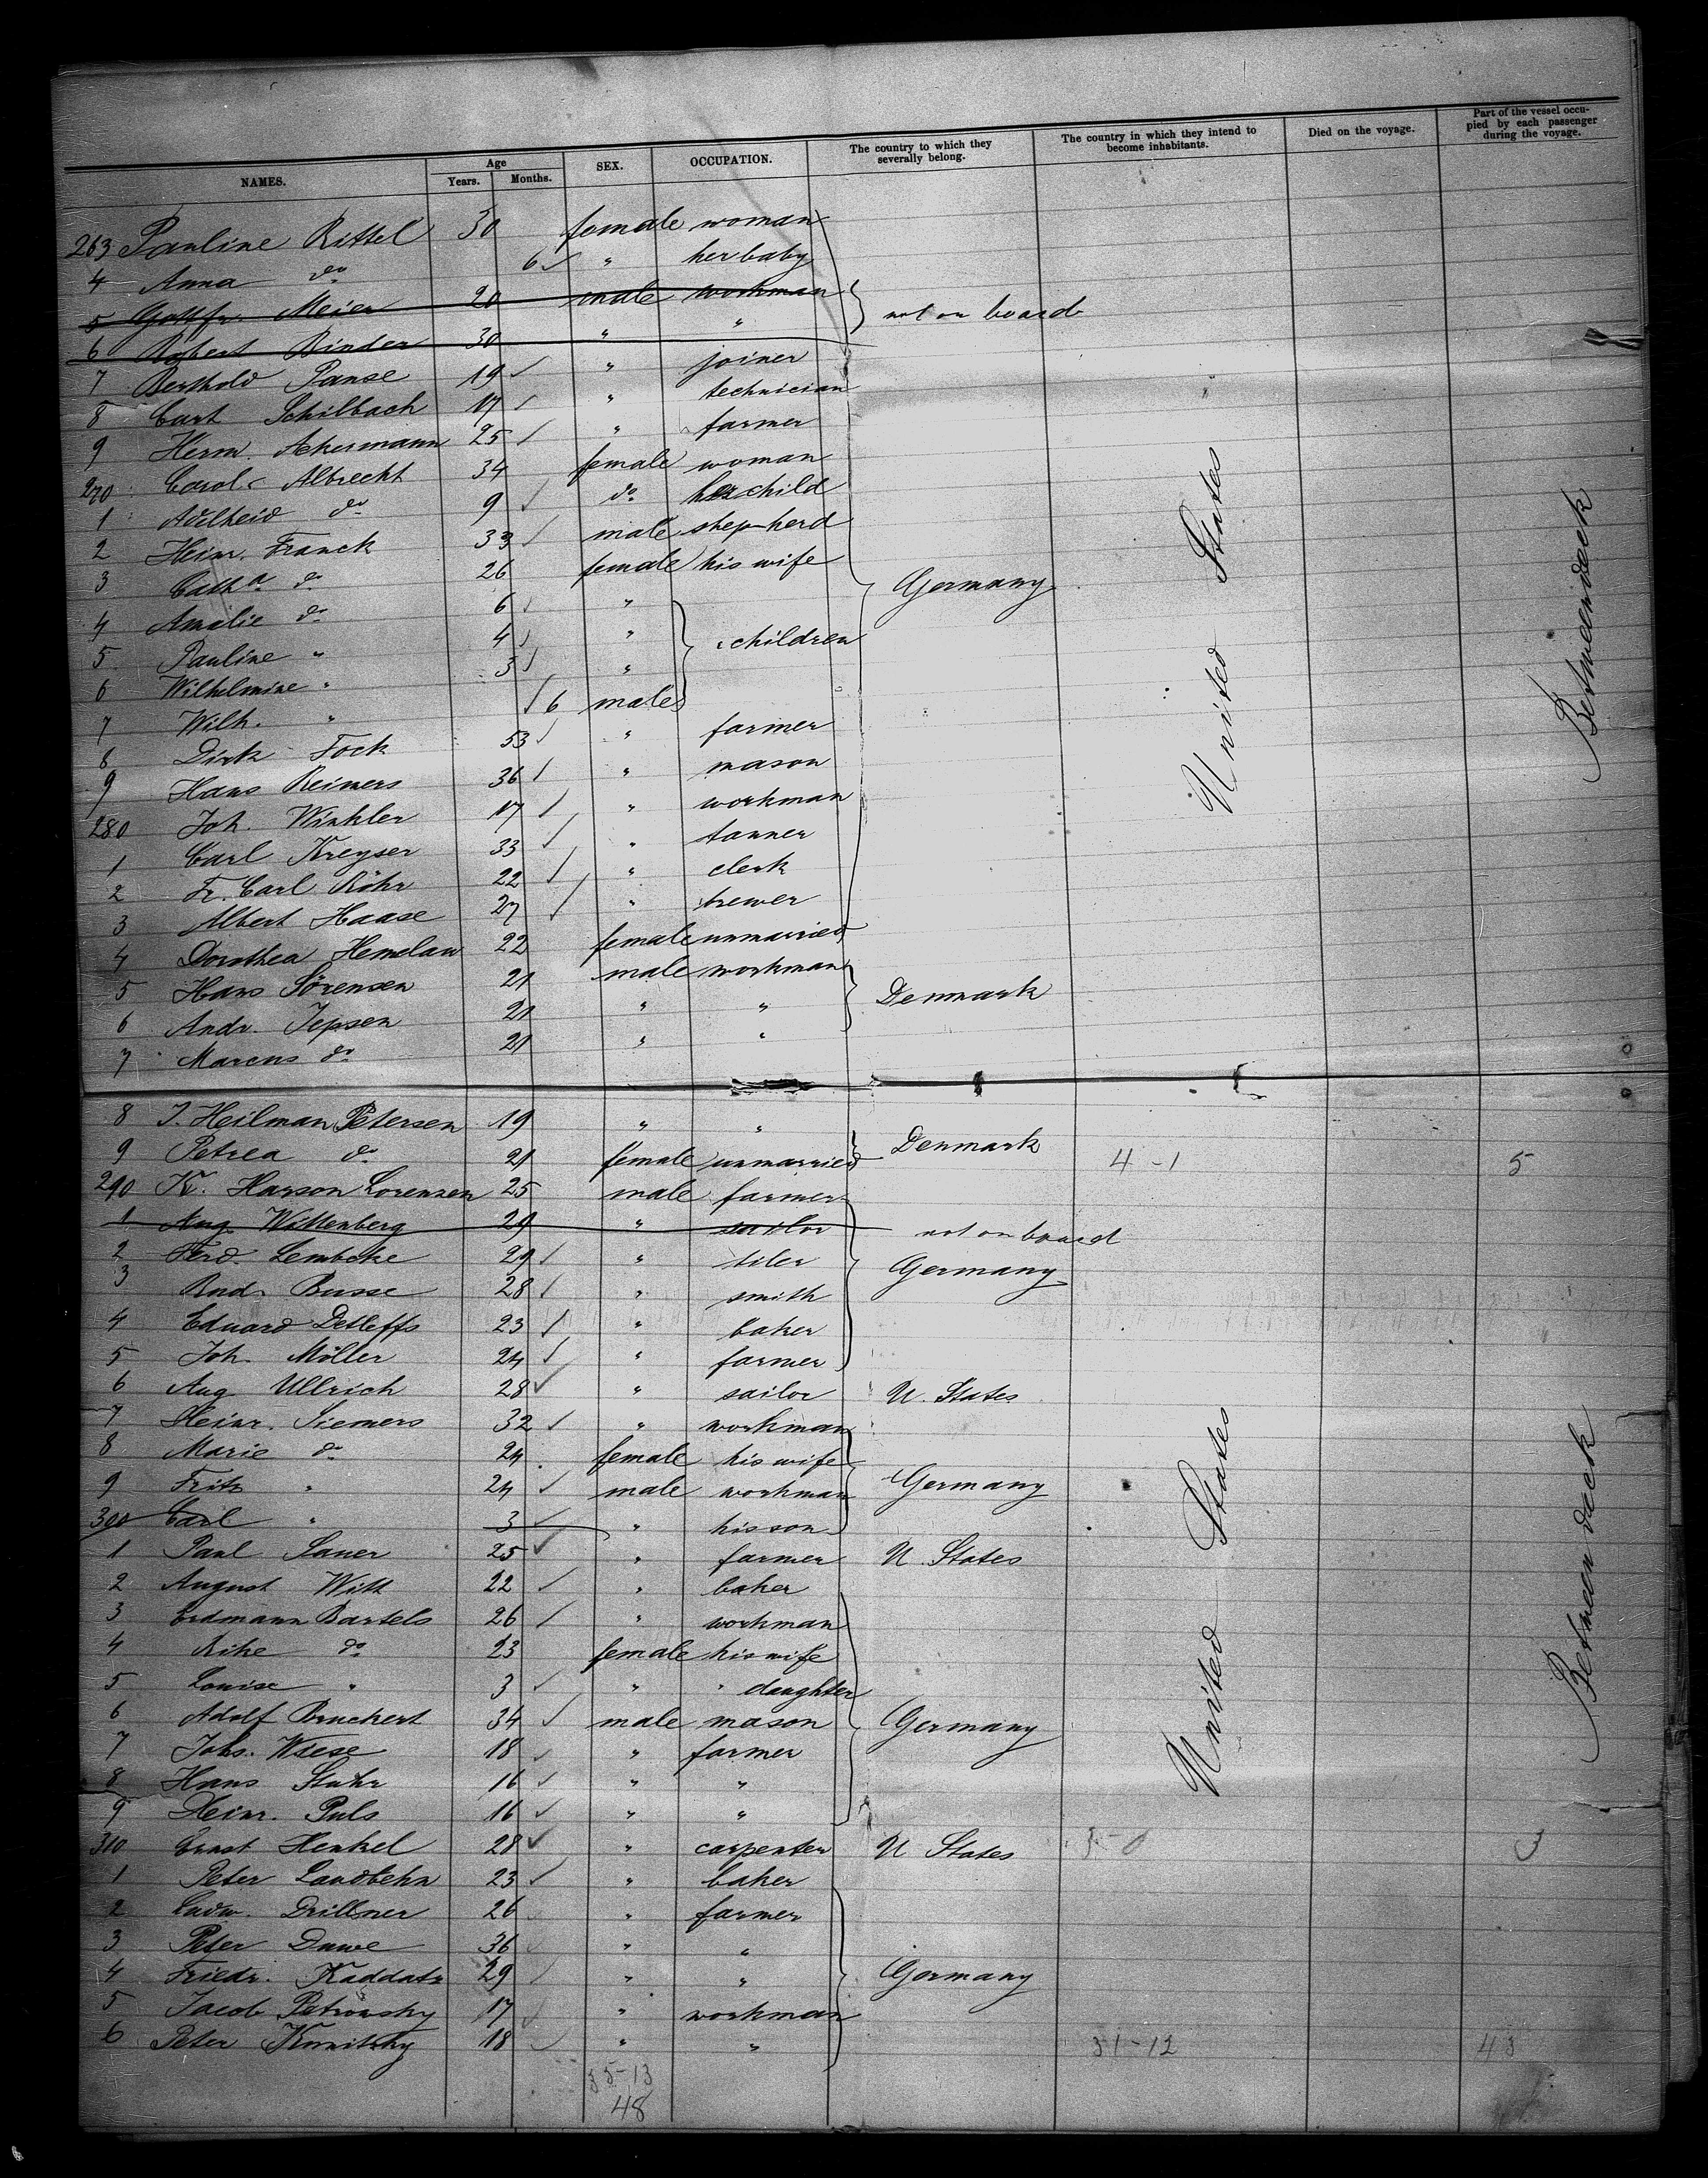 NAMES. Age Years. Months. SEX. OCCUPATION. The country to which they severally belong. The country in which they intend to become inhabitants. Died on the voyage. Part of the vessel occupied by each passenger during the voyage.
263 Pauline Rittel 30 female woman
4 Anna do 6 " her baby
5 Gottfr. Meier 20 male workman
not on board
6 Robert Binder 30 " "
7 Berthold Panse 19 " joiner
8 Curt Schilbach 17 " technician
9 Herm. Ackermann 25 " farmer
270 Carol. Albrecht 34 female woman
1 Adelheid do 9 do her child
2 Heinr. Franck 33 male shepherd
3 Catha do 26 female his wife
Germany United States Betweendeck
4 Amalie do 6 "
5 Pauline " 4 " children
6 Wilhelmine " 3 "
7 Wilh. " 6 male
8 Dirk Fock 53 " farmer
9 Hans Reimers 36 " mason
280 Joh. Winkler 17 " workman
1 Carl Kreyser 33 " tanner
2 Fr. Carl Röhr 22 " clerk
3 Albert Haase 27 " brewer
4 Dorothea Hemelau 22 female unmarried
5 Hans Sörensen 21 male workman
Denmark
6 Andr. Jepsen 21 " "
7 Marcus do 21 " "
8 J. Heilman Petersen 19 " "
Denmark
9 Petrea do 21 female unmarried 4-1 5
290 K. Harson Lorenzen 25 male farmer
1 Aug. Wittenberg 29 " sailor not on board
2 Ferd. Lembcke 29 " tiler Germany
3 Rud. Busse 28 " smith
4 Eduard Detleffs 23 " baker
5 Joh. Möller 24 " farmer
6 Aug. Ullrich 28 " sailor U. States
7 Heinr. Siemers 32 " workman
8 Marie do 24 female his wife
9 Fritz " 24 male workman Germany
300 Carl " 3 " his son
1 Paul Sauer 25 " farmer U. States
2 August Witt 22 " baker
3 Erdmann Bartels 26 " workman
4 Rike do 23 female his wife
5 Louise " 3 " " daughter
6 Adolf Bruchert 34 male mason Germany United States Between deck
7 Johs. Wiese 18 " farmer
8 Hans Stuhr 16 " "
9 Heinr. Puls 16 " "
310 Ernst Henkel 28 " carpenter U States 3
1 Peter Landbehn 23 " baker
2 Ludw. Drillner 26 " farmer
3 Peter Duwe 36 " "
4 Friedr. Kaddatz 29 " " Germany
5 Jacob Petrowsky 17 " workman
6 Peter 18 " " 31-12 43
35-13
48